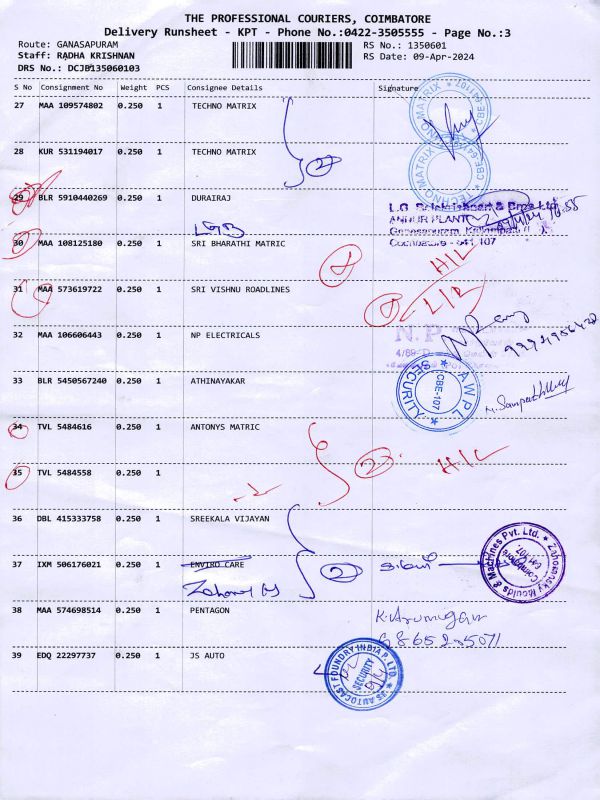 THE PROFESSIONAL COURIERS, COIMBATORE
Delivery Runsheet - KPT - Phone No.:0422-3505555 - Page No.:3
Route: GANASAPURAM
RS No.: 1350601
Staff: RADHA KRISHNAN
RS Date: 09-Apr-2024
DRS No.: DCJB135060103
S No Consignment No Weight PCS Consignee Details Signature
27 MAA 109574802 0.250 1 TECHNO MATRIX
28 KUR 531194017 0.250 1 TECHNO MATRIX
2
29 BLR 5910440269 0.250 1 DURAIRAJ
LGB
30 MAA 108125180 0.250 1 SRI BHARATHI MATRIC
H/L
31 MAA 573619722 0.250 1 SRI VISHNU ROADLINES
32 MAA 106606443 0.250 1 NP ELECTRICALS
33 BLR 5450567240 0.250 1 ATHINAYAKAR
AWPL
SECURITY
CBE-107
34 TVL 5484616 0.250 1 ANTONYS MATRIC
35 TVL 5484558 0.250 1
2
H/L
36 DBL 415333758 0.250 1 SREEKALA VIJAYAN
37 IXM 506176021 0.250 1 ENVIRO CARE
2
38 MAA 574698514 0.250 1 PENTAGON
K. Arumugam
39 EDQ 22297737 0.250 1 JS AUTO
JS AUTOCAST FOUNDRY INDIA P. LTD.
SECURITY